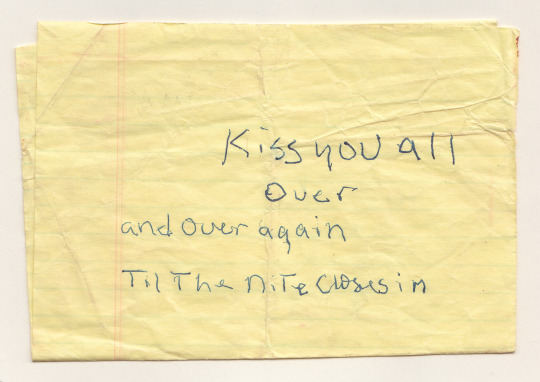 Kiss you all
Over
and Over again
Til The Nite Closes in